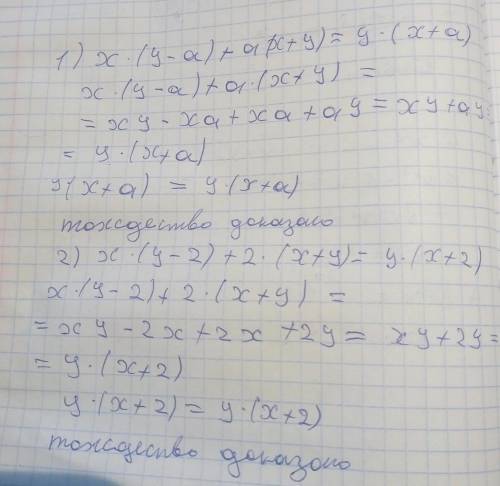 1) x·(y-a)+a(x+y)= y·(x+a)
x·(y-a)+a·(x+y) =
= xy - xa + xa + ay = xy + ay
= y·(x+a)
y(x+a) = y·(x+a)
тождество доказано
2) x·(y-2)+2·(x+y)= y·(x+2)
x·(y-2)+2·(x+y) =
= xy - 2x + 2x + 2y = xy+2y=
= y·(x+2)
y·(x+2) = y·(x+2)
тождество доказано